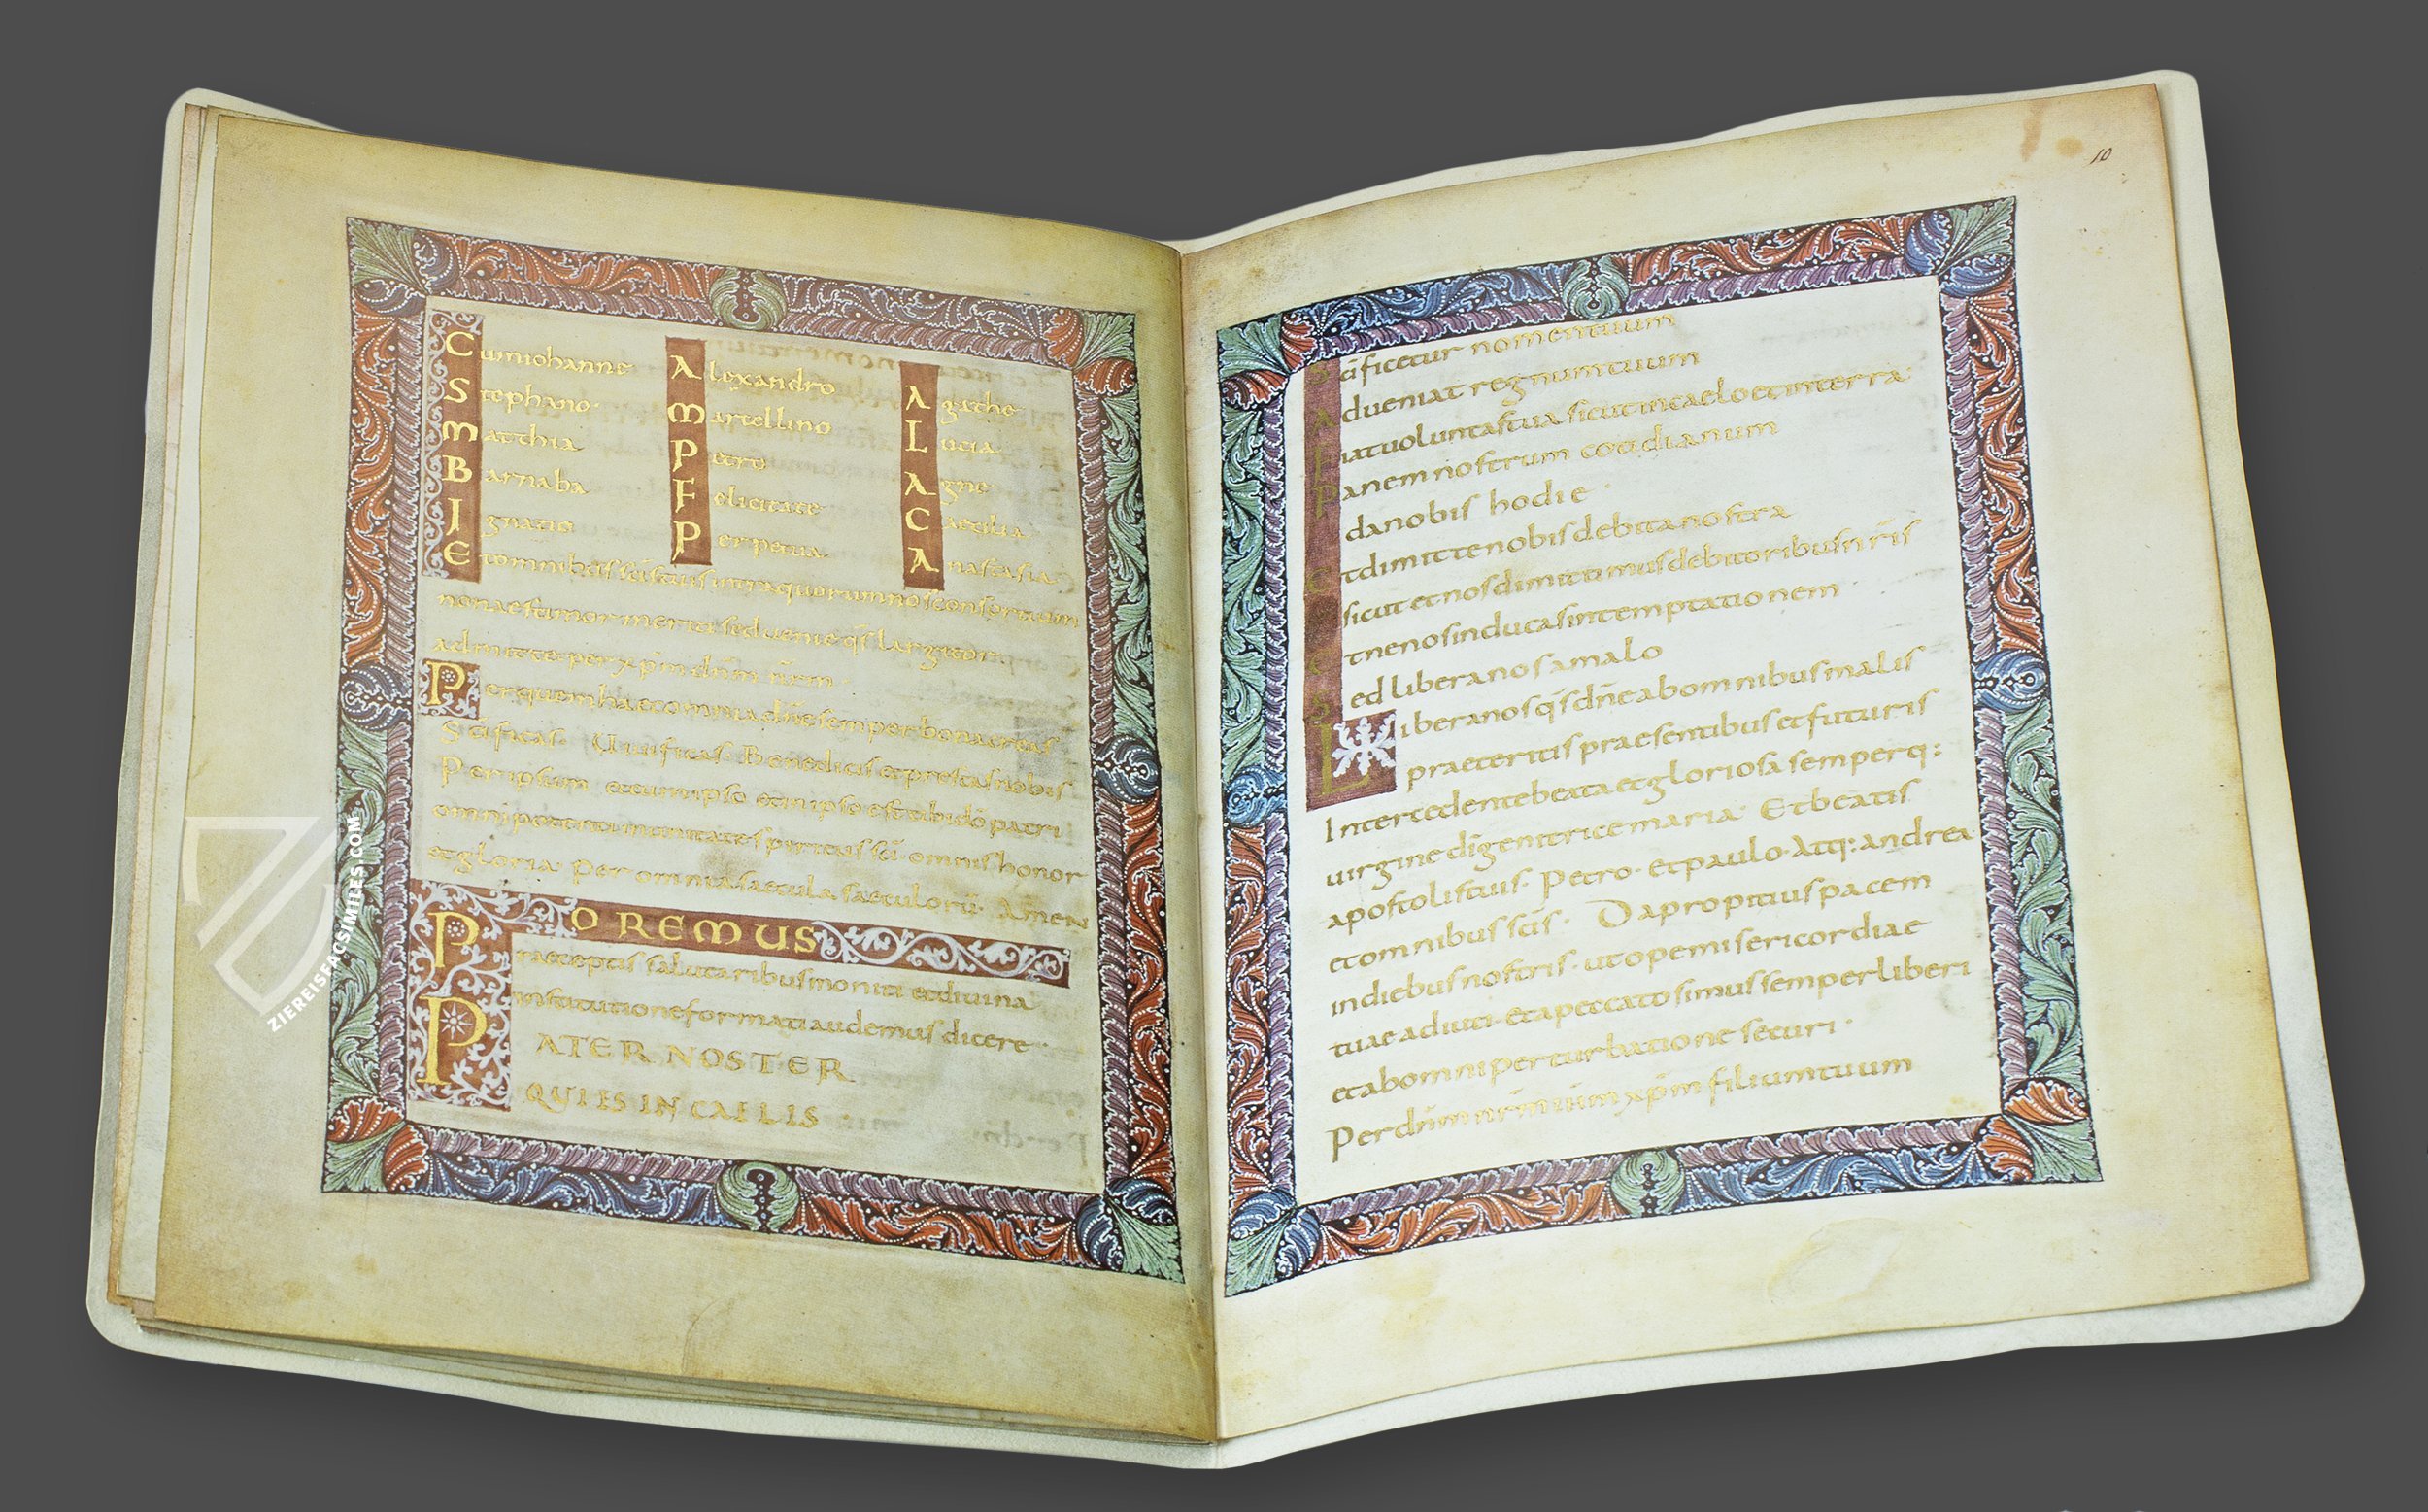 Cumiohanne
Stephano·
Matthia
Barnaba
Ignatio
Alexandro
Martellino
Petro
Felicitate
Perpetua
Agathe
Lucia
Agne
Caecilia
Anastasia
Etomnibus scis tuis intra quorum nos consortium
non aestimor meriti sed uenie qs largitor
admitte· per xpm dnm nrm·
Per quem haec omnia dne semper bona creas
Scificas· Uiuificas· Benedicis et prestas nobis
Per ipsum et cum ipso et in ipso est tibi do patri
omnipotenti in unitate spiritus sci· omnis honor
et gloria Per omnia saecula saeculorū· Amen
OREMUS
Praeceptis salutaribus moniti et diuina
institutione formati audemus dicere·
PATER NOSTER
QUI ES IN CAELIS
10
Scificetur nomen tuum
Adueniat regnum tuum
Fiat uoluntas tua sicut in caelo et in terra·
Panem nostrum cotidianum
da nobis hodie·
Et dimitte nobis debita nostra
sicut et nos dimittimus debitoribus nris
Et ne nos inducas in temptationem
Sed libera nos a malo
Libera nos qs dne ab omnibus malis
praeteritis praesentibus et futuris
Intercedente beata et gloriosa semperq:
uirgine di genitrice maria· Et beatis
apostolis tuis· Petro· et paulo· Atq: andrea·
et omnibus scis· Da propitius pacem
in diebus nostris· ut ope misericordiae
tuae adiuti· Et a peccato simus semper liberi
et ab omni perturbatione securi·
Per dnm nrm ihm xpm filium tuum
ZIEREISFACSIMILES.COM